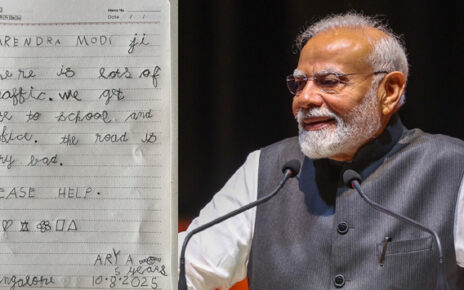 Memo No
Date / /
ARENDRA MODI ji
here is lots of
affic. we get
te to school and
fice. the road is
ry bad.
EASE HELP.
ARYA
5 years
angalore 10.8.2025